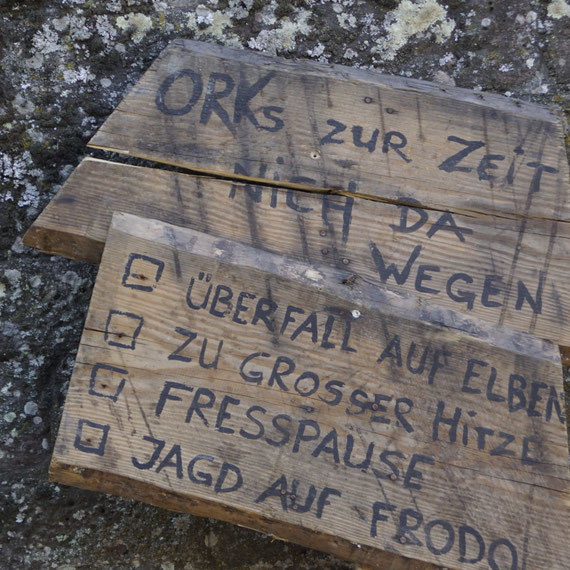 ORKs ZUR ZEIT
NICH DA
WEGEN
ÜBERFALL AUF ELBEN
ZU GROSSER HITZE
FRESSPAUSE
JAGD AUF FRODO